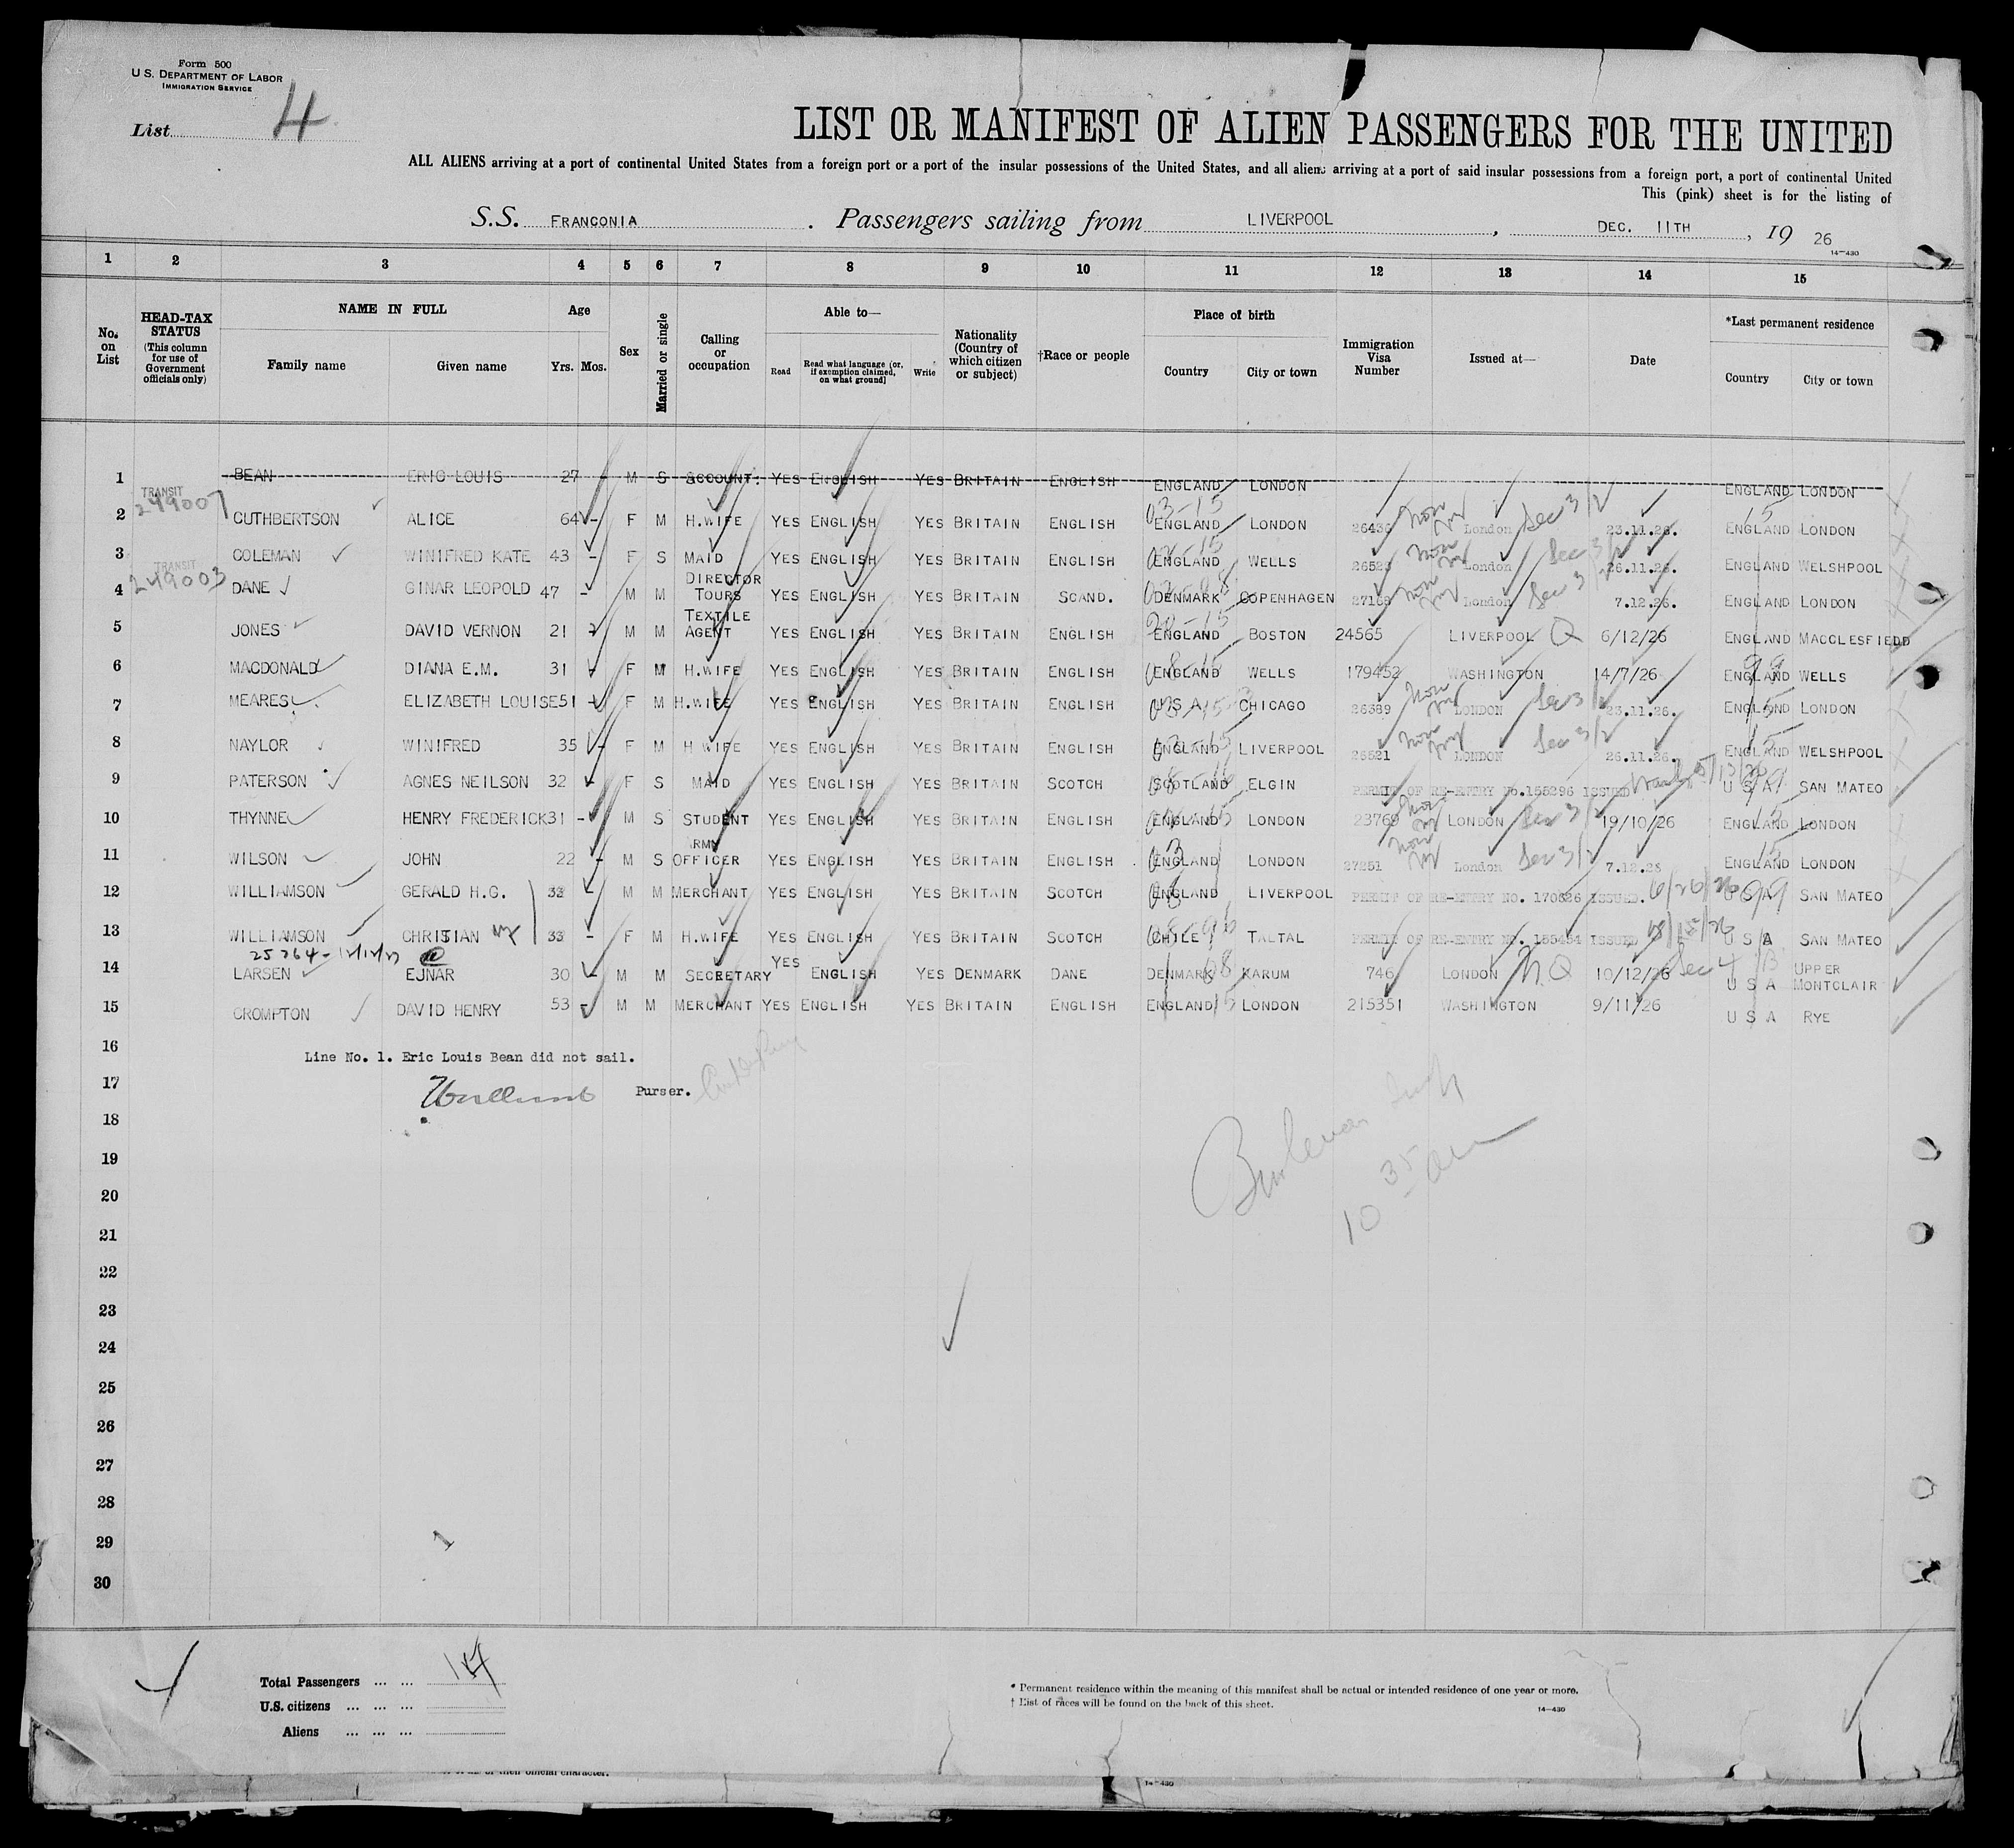 Form 500
U.S. DEPARTMENT OF LABOR
IMMIGRATION SERVICE
List 4
LIST OR MANIFEST OF ALIEN PASSENGERS FOR THE UNITED
ALL ALIENS arriving at a port of continental United States from a foreign port or a port of the insular possessions of the United States, and all aliens arriving at a port of said insular possessions from a foreign port, a port of continental United
This (pink) sheet is for the listing of
S.S. FRANCONIA . Passengers sailing from LIVERPOOL , DEC. 11TH , 19 26
14—430
1 2 3 4 5 6 7 8 9 10 11 12 13 14 15
No. on List
HEAD-TAX STATUS (This column for use of Government officials only)
NAME IN FULL
Family name Given name
Age
Yrs. Mos.
Sex
Married or single
Calling or occupation
Able to—
Read Read what language (or, if exemption claimed, on what ground) Write
Nationality (Country of which citizen or subject)
†Race or people
Place of birth
Country City or town
Immigration Visa Number
Issued at—
Date
*Last permanent residence
Country City or town
1 BEAN ERIC LOUIS 27 M S ACCOUNT. YES ENGLISH YES BRITAIN ENGLISH ENGLAND LONDON ENGLAND LONDON
TRANSIT 249007
2 CUTHBERTSON ALICE 64 - F M H.WIFE YES ENGLISH YES BRITAIN ENGLISH 03-15 ENGLAND LONDON 26436 London Sec 3/2 23.11.26. 15 ENGLAND LONDON
3 COLEMAN WINIFRED KATE 43 - F S MAID YES ENGLISH YES BRITAIN ENGLISH ENGLAND WELLS 26528 London Sec 3/2 26.11.26. ENGLAND WELSHPOOL
TRANSIT 249003
4 DANE GINAR LEOPOLD 47 - M M DIRECTOR TOURS YES ENGLISH YES BRITAIN SCAND. DENMARK COPENHAGEN 27168 London Sec 3/2 7.12.26. ENGLAND LONDON
5 JONES DAVID VERNON 21 - M M TEXTILE AGENT YES ENGLISH YES BRITAIN ENGLISH ENGLAND BOSTON 24565 LIVERPOOL Q 6/12/26 ENGLAND MACCLESFIEDD
6 MACDONALD DIANA E.M. 31 - F M H.WIFE YES ENGLISH YES BRITAIN ENGLISH ENGLAND WELLS 179452 WASHINGTON 14/7/26 99 ENGLAND WELLS
7 MEARES ELIZABETH LOUISE 51 - F M H.WIFE YES ENGLISH YES BRITAIN ENGLISH U S A CHICAGO 26389 LONDON Sec 3/2 23.11.26. 15 ENGLAND LONDON
8 NAYLOR WINIFRED 35 - F M H WIFE YES ENGLISH YES BRITAIN ENGLISH ENGLAND LIVERPOOL 26521 LONDON Sec 3/2 26.11.26. 15 ENGLAND WELSHPOOL
9 PATERSON AGNES NEILSON 32 - F S MAID YES ENGLISH YES BRITAIN SCOTCH SCOTLAND ELGIN PERMIT OF RE-ENTRY NO.155296 ISSUED U S A 99 SAN MATEO
10 THYNNE HENRY FREDERICK 31 - M S STUDENT YES ENGLISH YES BRITAIN ENGLISH ENGLAND LONDON 23769 LONDON Sec 3/2 19/10/26 15 ENGLAND LONDON
11 WILSON JOHN 22 - M S ARMY OFFICER YES ENGLISH YES BRITAIN ENGLISH 03 ENGLAND LONDON 27251 London Sec 3/2 7.12.26 15 ENGLAND LONDON
12 WILLIAMSON GERALD H.G. 33 M M MERCHANT YES ENGLISH YES BRITAIN SCOTCH ENGLAND LIVERPOOL PERMIT OF RE-ENTRY NO. 170626 ISSUED. 6/26/26 U S A 99 SAN MATEO
13 WILLIAMSON CHRISTIAN 33 - F M H.WIFE YES ENGLISH YES BRITAIN SCOTCH CHILE TALTAL PERMIT OF RE-ENTRY NO. 155454 ISSUED U S A SAN MATEO
14 LARSEN EJNAR 30 - M M SECRETARY YES ENGLISH YES DENMARK DANE DENMARK 08 KARUM 746 LONDON N.Q 10/12/26 Sec 4 U S A UPPER MONTCLAIR
15 CROMPTON DAVID HENRY 53 - M M MERCHANT YES ENGLISH YES BRITAIN ENGLISH ENGLAND 15 LONDON 215351 WASHINGTON 9/11/26 U S A RYE
16 Line No. 1. Eric Louis Bean did not sail.
17 Purser.
18
19
20
10 35 am
21
22
23
24
25
26
27
28
29
30
Total Passengers ... ... 14
U.S. citizens ... ... ...
Aliens ... ... ...
* Permanent residence within the meaning of this manifest shall be actual or intended residence of one year or more.
† List of races will be found on the back of this sheet.
14—430
14—430